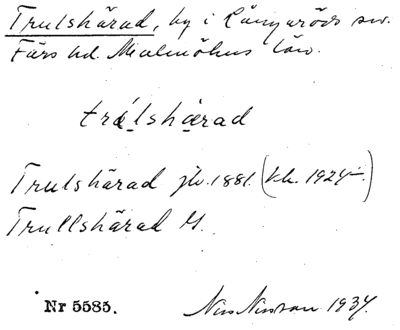 Trulshärad, by i Långaröds sn.
Färs hd. Malmöhus län.
trȧ́lshärad
Trulshärad jbr. 1881. (kk. 1924)
Trullshärad M.
Nr 5585. Nils Nilsson 1937.